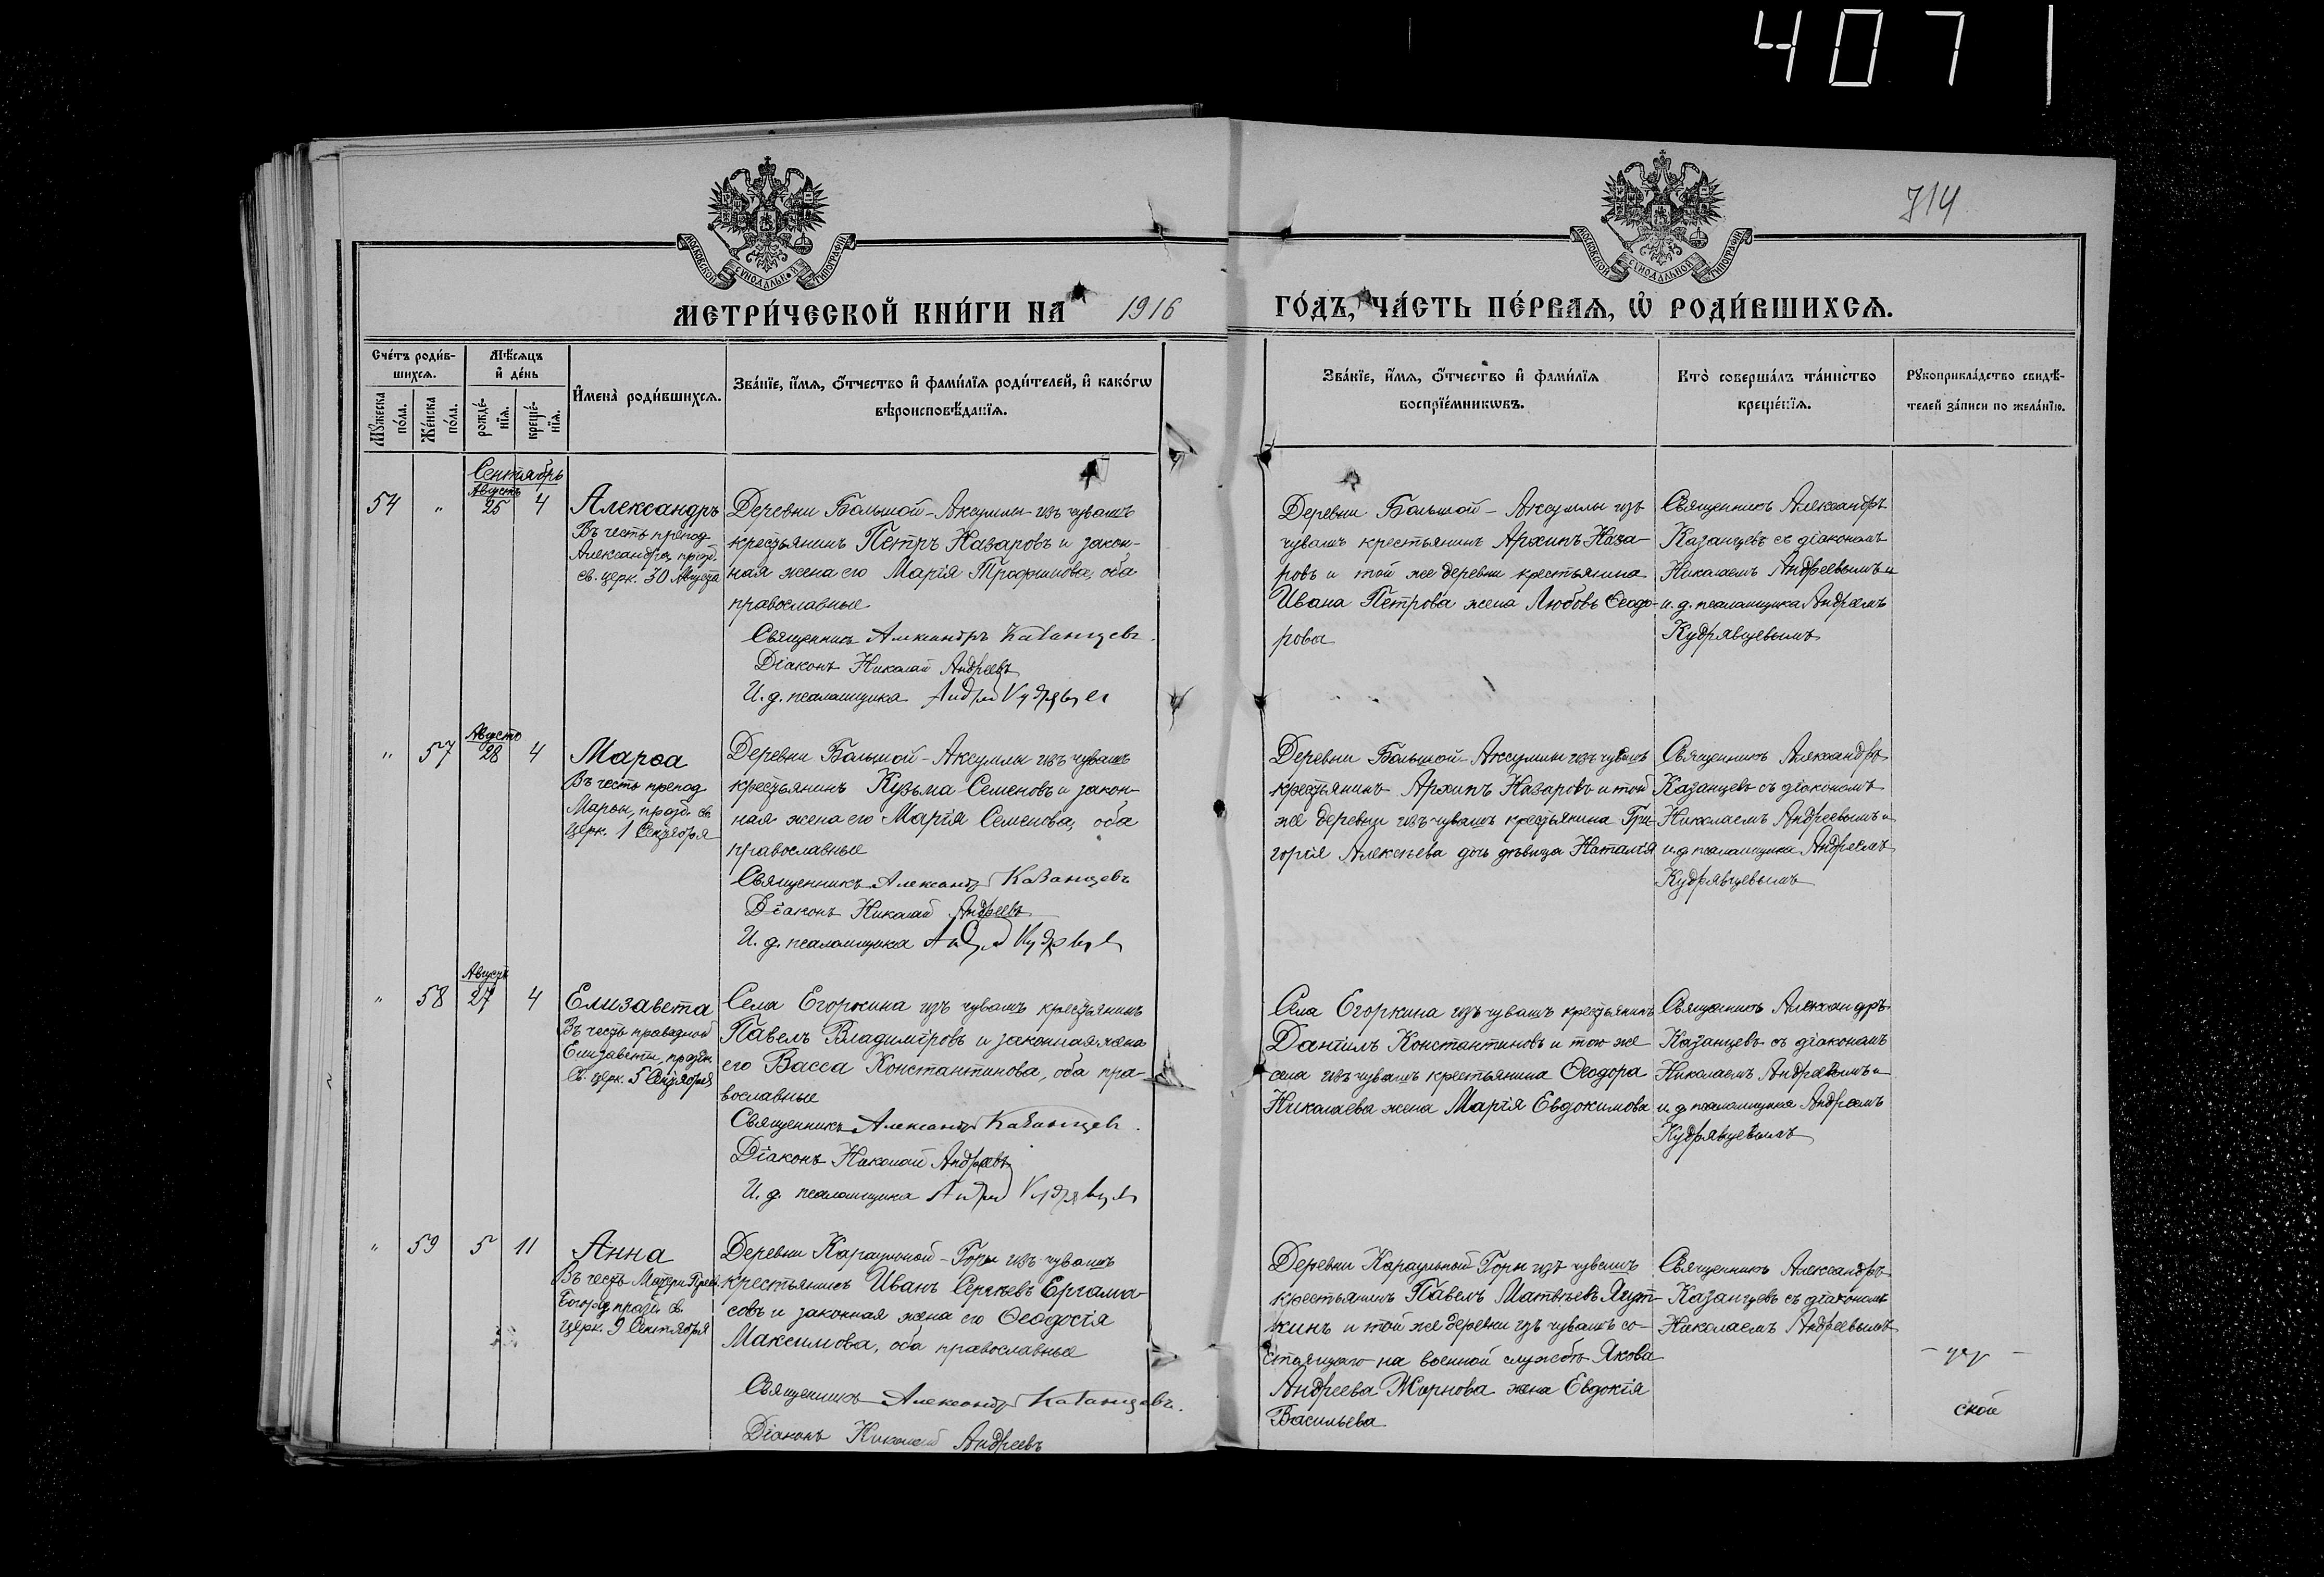 4071
714
МОСКОВСКОЙ СѴНОДАЛЬНОЙ ТИПОГРАФІИ
МОСКОВСКОЙ СѴНОДАЛЬНОЙ ТИПОГРАФІИ
МЕТРИ́ЧЕСКОЙ КНИ́ГИ НА 1916 ГО́ДЪ, ЧА́СТЬ ПЕ́РВАЯ, Ѡ҆ РОДИ́ВШИХСЯ.
Сче́тъ роди́в-
шихся.
Мѣ́сяцъ
и҆ де́нь
Мꙋ́жеска
по́ла.
Же́нска
по́ла.
рожде́-
нїя.
креще́-
нїя.
И҆мена̀ роди́вшихся.
Зва́нїе, и҆́мя, ѻ҆́тчество и҆ фами́лїя роди́телей, и҆ како́гѡ
вѣроисповѣ́данїя.
Зва́нїе, и҆́мя, ѻ҆́тчество и҆ фами́лїя
воспрїе́мникѡвъ.
Кто̀ соверша́лъ та́инство
креще́нїя.
Рꙋкоприкла́дство свидѣ́-
телей за́писи по жела́нїю.
Сентябрь
Августъ
54 " 25 4
Александръ
Въ честь препод.
Александра, празд.
св. церк. 30 Августа
Деревни Большой-Аксумлы изъ чувашъ
крестьянинъ Петръ Назаровъ и закон-
ная жена его Марія Трофимова, оба
православные
Священникъ Александръ Казанцевъ.
Діаконъ Николай Андреевъ
И. д. псаломщика Андрей Кудрявцев
Деревни Большой-Аксумлы изъ
чувашъ крестьянинъ Архипъ Наза-
ровъ и той же деревни крестьянина
Ивана Петрова жена Любовь Ѳеодо-
рова
Священникъ Александръ
Казанцевъ съ діакономъ
Николаемъ Андреевымъ и
и. д. псаломщика Андреемъ
Кудрявцевымъ
Августъ
" 57 28 4
Марѳа
Въ честь препод.
Марѳы, празд. св.
церк. 1 Сентября
Деревни Большой-Аксумлы изъ чувашъ
крестьянинъ Кузьма Семеновъ и закон-
ная жена его Марія Семенова, оба
православные
Священникъ Александръ Казанцевъ
Діаконъ Николай Андреевъ
И. д. псаломщика Андрей Кудрявцев
Деревни Большой-Аксумлы изъ чувашъ
крестьянинъ Архипъ Назаровъ и той
же деревни изъ чувашъ крестьянина Гри-
горія Алексѣева дочь дѣвица Наталія
Священникъ Александръ
Казанцевъ съ діакономъ
Николаемъ Андреевымъ и
и.д псаломщика Андреемъ
Кудрявцевымъ
Августъ
" 58 27 4
Елизавета
Въ честь праведной
Елизаветы, праздн.
св. церк. 5 Сентября
Села Егоркина изъ чувашъ крестьянинъ
Павелъ Владиміровъ и законная жена
его Васса Константинова, оба пра-
вославные
Священникъ Александръ Казанцев.
Діаконъ Николай Андреевъ
И. д. псаломщика Андрей Кудрявцев
Села Егоркина изъ чувашъ крестьянинъ
Даніилъ Константиновъ и того же
села изъ чувашъ крестьянина Ѳеодора
Николаева жена Марія Евдокимова
Священникъ Александръ
Казанцевъ съ діакономъ
Николаемъ Андреевымъ и
и. д псаломщика Андреемъ
Кудрявцевымъ
" 59 5 11
Анна
Въ честь Матери Пресв.
Богород. празд. св.
церк. 9 Сентября
Деревни Караульной-Горы изъ чувашъ
крестьянинъ Иванъ Сергѣевъ Ергама-
совъ и законная жена его Ѳеодосія
Максимова, оба православные
Священникъ Александръ Казанцевъ.
Діаконъ Николай Андреевъ
Деревни Караульной-Горы изъ чувашъ
крестьянинъ Павелъ Матвѣевъ
кинъ и той же деревни изъ чувашъ со-
стоящаго на военной службѣ Якова
Андреева Жирнова жена Евдокія
Васильева
Священникъ Александръ
Казанцевъ съ діакономъ
Николаемъ Андреевымъ
ской